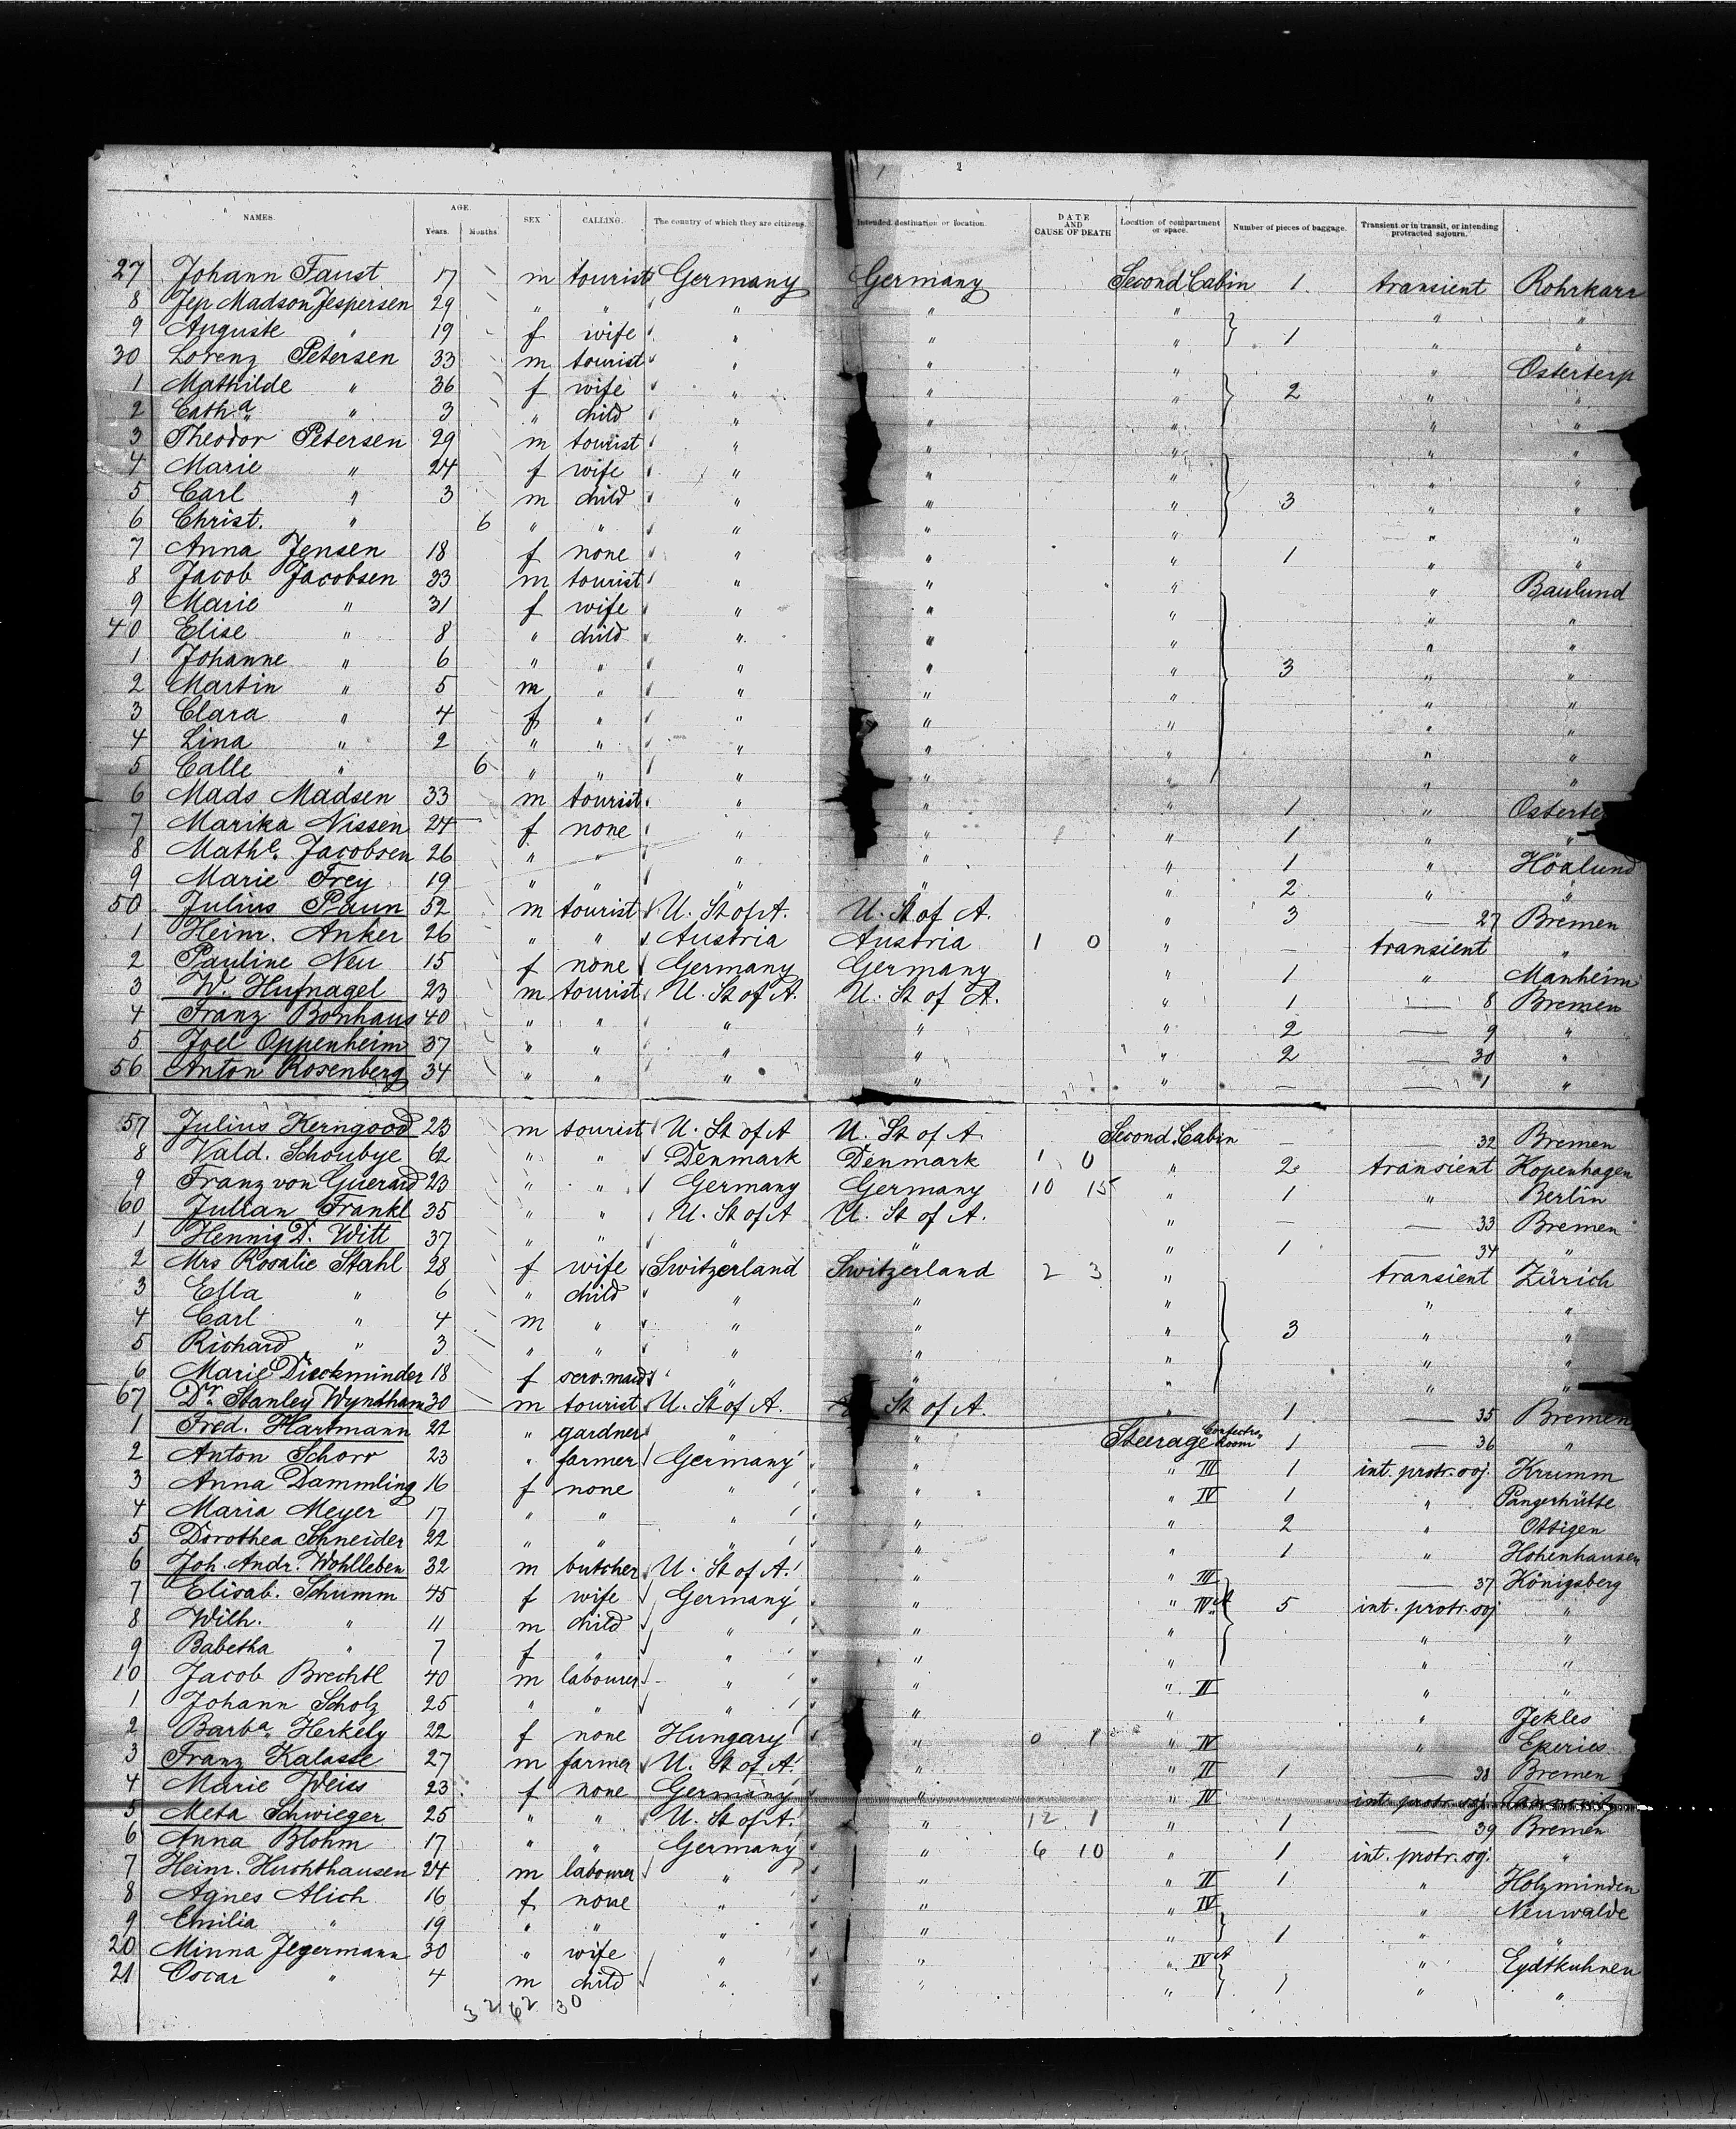 NAMES. AGE. Years. Months. SEX CALLING. The country of which they are citizens. Intended destination or location. DATE AND CAUSE OF DEATH Location of compartment or space. Number of pieces of baggage. Transient or in transit, or intending protracted sojourn.
27 Johann Faust 17 m tourist Germany Germany Second Cabin 1 transient Rohrkarr
8 Jep Madson Jespersen 29 " " " " " " "
9 Auguste " 19 f wife " " " 1 " "
30 Lorenz Petersen 33 m tourist " " " " Osterterp
1 Mathilde " 36 f wife " " " 2 " "
2 Cath.a " 3 " child " " " " "
3 Theodor Petersen 29 m tourist " " " " "
4 Marie " 24 f wife " " " " "
5 Carl " 3 m child " " " 3 " "
6 Christ. " 6 " " " " " " "
7 Anna Jensen 18 f none " " " 1 " "
8 Jacob Jacobsen 33 m tourist " " " " Baulund
9 Marie " 31 f wife " " " " "
40 Elise " 8 " child " " " " "
1 Johanne " 6 " " " " " 3 " "
2 Martin " 5 m " " " " " "
3 Clara " 4 f " " " " " "
4 Lina " 2 " " " " " " "
5 Calle " 6 " " " " " " "
6 Mads Madsen 33 m tourist " " " 1 " Osterte
7 Marika Nissen 24 f none " " " 1 " "
8 Mathe. Jacobsen 26 " " " " " 1 " Höalund
9 Marie Frey 19 " " " " " 2 " "
50 Julius Paun 52 m tourist U. St of A. U. St of A. " 3 — 27 Bremen
1 Heinr. Anker 26 " " Austria Austria 1 0 " — transient "
2 Pauline Neu 15 f none Germany Germany " 1 " Manheim
3 W. Hufnagel 23 m tourist U. St of A. U. St of A. " 1 — 8 Bremen
4 Franz Bonhaus 40 " " " " " 2 — 9 "
5 Joel Oppenheim 37 " " " " " 2 — 30 "
56 Anton Rosenberg 34 " " " " " — — 1 "
57 Julius Kerngood 23 m tourist U. St of A U. St of A. Second Cabin — — 32 Bremen
8 Vald. Schoubye 62 " " Denmark Denmark 1 0 " 2 transient Kopenhagen
9 Franz von Guerard 23 " " Germany Germany 10 15 " 1 " Berlin
60 Julian Frankl 35 " " U. St of A U. St of A. " — — 33 Bremen
1 Hennig D. Witt 37 " " " " " 1 — 34 "
2 Mrs Rosalie Stahl 28 f wife Switzerland Switzerland 2 3 " transient Zürich
3 Ella " 6 " child " " " " "
4 Carl " 4 m " " " " 3 " "
5 Richard " 3 " " " " " " "
6 Marie Dieckminder 18 f serv. maid " " " " "
67 Dr. Stanley Wyndham 30 m tourist U. St of A. St of A. " 1 — 35 Bremen
1 Fred. Hartmann 22 " gardner " " Steerage Room 1 — 36 "
2 Anton Schorr 23 " farmer Germany " " III 1 int. protr. soj. Krumm
3 Anna Dammling 16 f none " " " IV 1 " Pangerhütte
4 Maria Meyer 17 " " " " " 2 " Ottigen
5 Dorothea Schneider 22 " " " " " 1 " Hohenhausen
6 Joh. Andr. Wohlleben 32 m butcher U. St of A. " " III — 37 Königsberg
7 Elisab. Schumm 45 f wife Germany " " IV A 5 int. protr. soj "
8 Wilh. " 11 m child " " " " "
9 Babetha " 7 f " " " " " "
10 Jacob Brechtl 40 m labourer " " " II " "
1 Johann Scholz 25 " " " " " " Jekles
2 Barba. Herkely 22 f none Hungary " 0 1 " IV " Eperies
3 Franz Kalasse 27 m farmer U. St of A. " " II 1 — 38 Bremen
4 Marie Weiss 23 f none Germany " " IV int. protr. soj.
5 Meta Schwieger 25 " " U. St of A. " 12 1 " 1 — 39 Bremen
6 Anna Blohm 17 " " Germany " 6 10 " 1 int. protr. soj. "
7 Heinr. Huchthausen 24 m labourer " " " II 1 " Holzminden
8 Agnes Alich 16 f none " " " IV " Neuwalde
9 Emilia " 19 " " " " " 1 " "
20 Minna Jegermann 30 " wife " " " IV A " Eydtkuhnen
21 Oscar " 4 m child " " " 1 " "
32 62 30